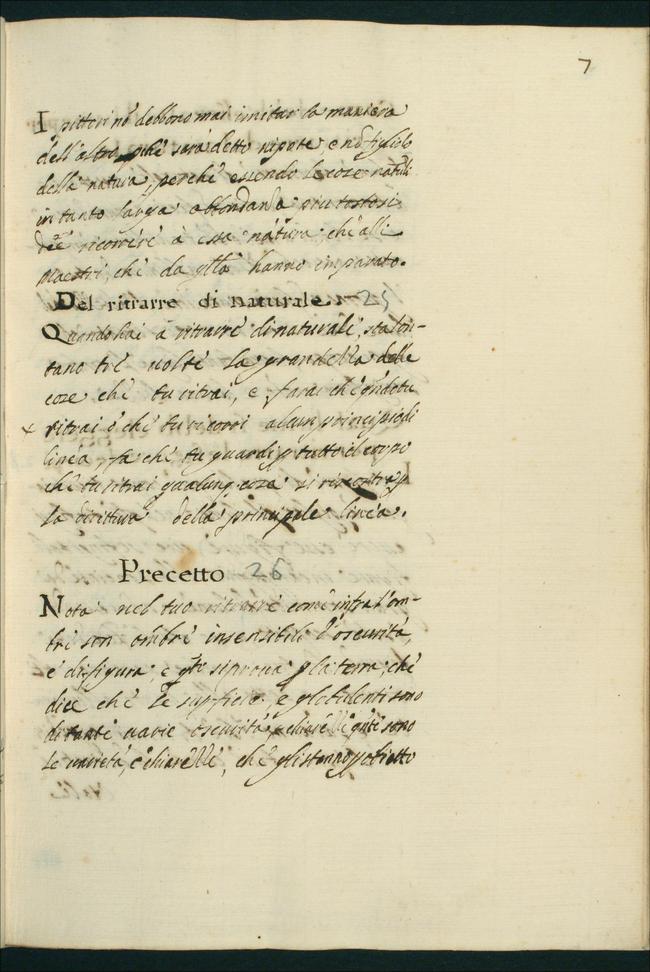 7
I pittori nō debbono mai imitar la maniera
dell'altro, ꝑchè sarà detto nipote, e nō figliolo
della natura, perchè essendo le cose natⁱ
in tanta larga abbondanza piu tostosi
deè ricorrere à essa natura, che alli
Maestri, chè da q̄lla hanno imparato.
Del ritrarre di naturale. 25
Quando hai à ritrarre di naturale, sta lon-
tano trè volte la grandezza delle
cose chè tu ritrai, e farai chè q̄ndo tu
ritrai ò chè tu ricorri alcun principio di
linea, fà chè tu guardi ꝑ tutto il corpo
chè tu ritrai qualunq. cosa si riscontra ꝑ
la dirittura della principale linea.
Precetto 26
Nota nel tuo ritrarre comè infra l'om-
brè son ombrè insensibili d'oscurità,
è di figura; e q̄to si prova ꝑ la terza, chè
dice chè le supficie, e globulenti sono
di tante varie oscurità, e chiarezze q̄nte sono
le varietà, è chiarezze, chè gli stanno ꝑ obietto